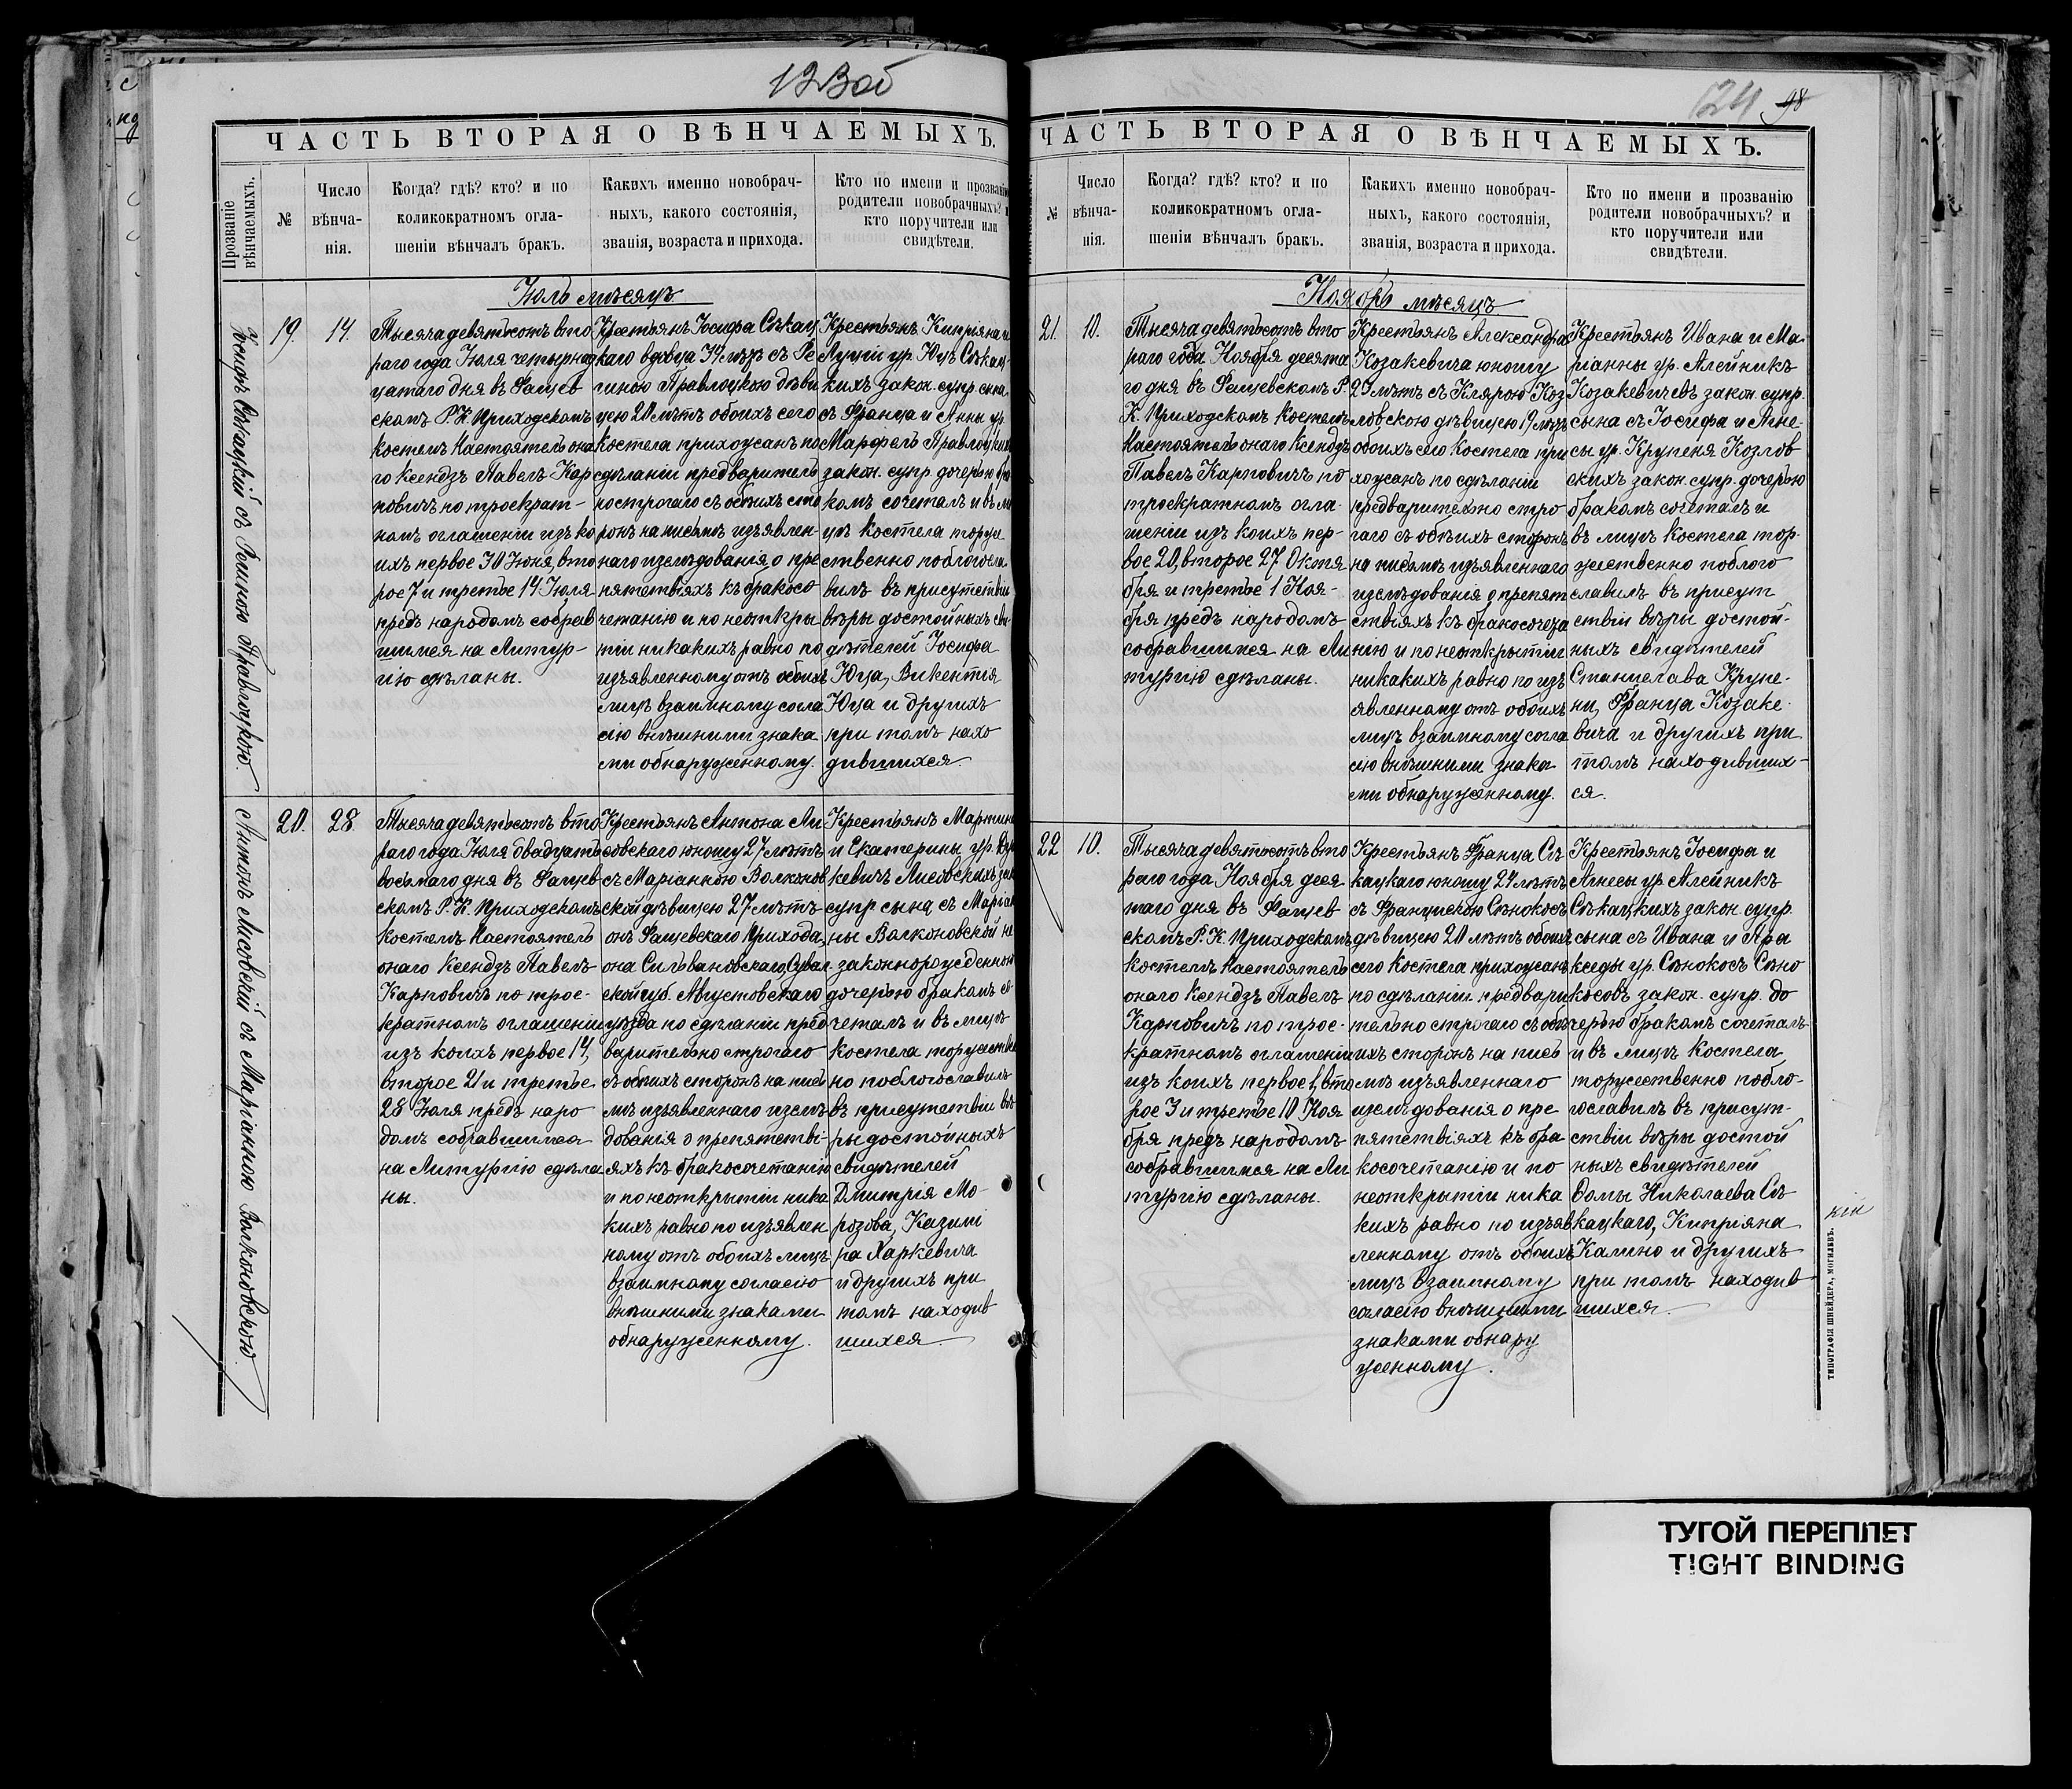 123об
ЧАСТЬ ВТОРАЯ О ВѢНЧАЕМЫХЪ.
Прозваніе вѣнчаемыхъ.
№
Число
вѣнча-
нія.
Когда? гдѣ? кто? и по
коликократномъ огла-
шеніи вѣнчалъ бракъ.
Какихъ именно новобрач-
ныхъ, какого состоянія,
званія, возраста и прихода.
Кто по имени и прозванію
родители новобрачныхъ? и
кто поручители или
свидѣтели.
Іюль мѣсяцъ
Іосифъ Сѣкацкій съ Региною Правлоцкою.
19.
14.
Тысяча девятьсотъ вто
раго года Іюля четырнад
цатаго дня въ Фащев
скомъ Р. К. Приходскомъ
костелѣ Настоятель она
го Ксендзъ Павелъ Кар
повичъ по троекрат-
номъ оглашеніи изъ ко
ихъ первое 30 Іюня, вто
рое 7 и третье 14 Іюля
предъ народомъ собрав
шимся на Литур-
гію сдѣланы.
Крестьянъ Іосифа Сѣкац
каго вдовца 34 лѣтъ съ Ре
гиною Правлоцкою дѣви
цею 20 лѣтъ обоихъ сего
костела прихожанъ по
сдѣланіи предваритель
но строгаго съ обѣихъ сто
ронъ на письмѣ изъявлен-
наго изслѣдованія о пре
пятствіяхъ къ бракосо
четанію и по неоткры
тіи никакихъ равно по
изъявленному отъ обоихъ
лицъ взаимному согла
сію внѣшними знака
ми обнаруженному.
Крестьянъ Кипріяна и
Луціи ур. Юцъ Сѣкац-
кихъ закон. супр. сына
съ Франца и Анны ур.
Марфель Правлоцкихъ
закон. супр. дочерью бра
комъ сочеталъ и въ ли
цѣ костела торже
ственно поблагосла
вилъ въ присутствіи
вѣры достойныхъ сви
дѣтелей Іосифа
Юца, Викентія
Юца и другихъ
при томъ нахо
дившихся.
Антонъ Лисовскій съ Маріанною Волконовскою
20.
28
Тысяча девятьсотъ вто
раго года Іюля двадцать
восьмаго дня въ Фащев-
скомъ Р. К. Приходскомъ
костелѣ Настоятель
онаго Ксендзъ Павелъ
Карповичъ по трое-
кратномъ оглашеніи
изъ коихъ первое 14,
второе 21 и третье
28 Іюля предъ наро
домъ собравшимся
на Литургію сдѣла
ны.
Крестьянъ Антона Ли
совскаго юношу 27 лѣтъ
съ Маріанною Волконов
ской дѣвицею 27 лѣтъ
онъ Фащевскаго Прихода,
она Сильвановскаго, Сувал
ской губ. Августовскаго
уѣзда по сдѣланіи пред
варительно строгаго
съ обѣихъ сторонъ на пись
мѣ изъявленнаго изслѣ
дованія о препятстві-
яхъ къ бракосочетанію
и по неоткрытіи ника
кихъ равно по изъявлен
ному отъ обоихъ лицъ
взаимному согласію
внѣшними знаками
обнаруженному.
Крестьянъ Мартина
и Екатерины ур.
кевичъ Лисовскихъ зак
супр сына, съ Маріан
ны Волконовской не
законнорожденною
дочерью бракомъ со
четалъ и въ лицѣ
костела торжествен
но поблагославилъ
въ присутствіи вѣ
ры достойныхъ
свидѣтелей
Дмитрія Мо-
розова, Казими
ра Харкевича
и другихъ при
томъ находив
шихся.
124 98
ЧАСТЬ ВТОРАЯ О ВѢНЧАЕМЫХЪ.
№
Число
вѣнча-
нія.
Когда? гдѣ? кто? и по
коликократномъ огла-
шеніи вѣнчалъ бракъ.
Какихъ именно новобрач-
ныхъ, какого состоянія,
званія, возраста и прихода.
Кто по имени и прозванію
родители новобрачныхъ? и
кто поручители или
свидѣтели.
Ноябрь мѣсяцъ
21.
10.
Тысяча девятьсотъ вто
раго года Ноября десята
го дня въ Фащевскомъ Р.
К. Приходскомъ костелѣ
Настоятель онаго Ксендзъ
Павелъ Карповичъ по
троекратномъ огла-
шеніи изъ коихъ пер-
вое 20, второе 27 Октя
бря и третье 1 Ноя-
бря предъ народомъ
собравшимся на Ли
тургію сдѣланы.
Крестьянъ Александра
Козакевича юношу
29 лѣтъ съ Клярою Коз
ловскою дѣвицею 19 лѣтъ
обоихъ сего костела при
хожанъ по сдѣланіи
предварительно стро
гаго съ обѣихъ сторонъ
на письмѣ изъявленнаго
изслѣдованія о препят
ствіяхъ къ бракосочета
нію и по неоткрытіи
никакихъ равно по изъ
явленному отъ обоихъ
лицъ взаимному согла
сію внѣшними знака
ми обнаруженному.
Крестьянъ Ивана и Ма-
ріанны ур. Алейникъ
Козакевичевъ закон. супр.
сына съ Іосифа и Агне-
сы ур. Крупеня Козлов
скихъ закон. супр. дочерью
бракомъ сочеталъ и
въ лицѣ костела тор-
жественно поблаго
славилъ въ присут
ствіи вѣры достой-
ныхъ свидѣтелей
Станислава Крупе-
ни, Франца Козаке-
вича и другихъ при
томъ находивших-
ся.
22
10.
Тысяча девятьсотъ вто
раго года Ноября деся
таго дня въ Фащев
скомъ Р. К. Приходскомъ
костелѣ Настоятель
онаго Ксендзъ Павелъ
Карповичъ по трое-
кратномъ оглашеніи
изъ коихъ первое 1, вто
рое 3 и третье 10 Ноя
бря предъ народомъ
собравшимся на Ли
тургію сдѣланы.
Крестьянъ Франца Сѣ
кацкаго юношу 24 лѣтъ
съ Францискою Сѣнокосъ
дѣвицею 20 лѣтъ обоихъ
сего костела прихожанъ
по сдѣланіи предвари
тельно строгаго съ обѣ
ихъ сторонъ на пись
мѣ изъявленнаго
изслѣдованія о пре
пятствіяхъ къ бра
косочетанію и по
неоткрытіи ника
кихъ равно по изъяв
ленному отъ обоихъ
лицъ взаимному
согласію внѣшними
знаками обнару
женному.
Крестьянъ Іосифа и
Агнесы ур. Алейникъ
Сѣкацкихъ закон. супр.
сына съ Ивана и Пра
кседы ур. Сѣнокосъ Сѣно
косовъ закон. супр. до
черью бракомъ сочеталъ
и въ лицѣ костела
торжественно побла-
гославилъ въ присут-
ствіи вѣры достой
ныхъ свидѣтелей
Фомы Николаева Сѣ
кацкаго, Кипріяна
Калино и другихъ
при томъ находив
шихся.
ТИПОГРАФІЯ ШНЕЙДЕРА, МОГИЛЕВЪ.
ТУГОЙ ПЕРЕПЛЕТ
TIGHT BINDING